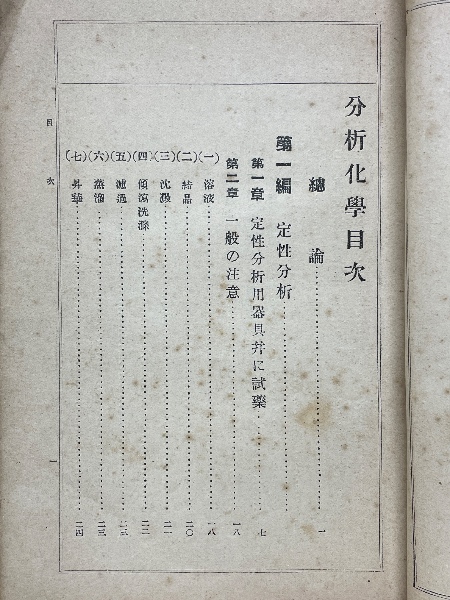 分析化學目次
總論……一
第一編 定性分析……
第一章 定性分析用器具幷に試藥……七
第二章 一般の注意……一八
(一) 溶液……一八
(二) 結晶……二〇
(三) 沈澱……二一
(四) 傾瀉洗滌……二二
(五) 濾過……二三
(六) 蒸溜……二三
(七) 昇華……二四
目次
一